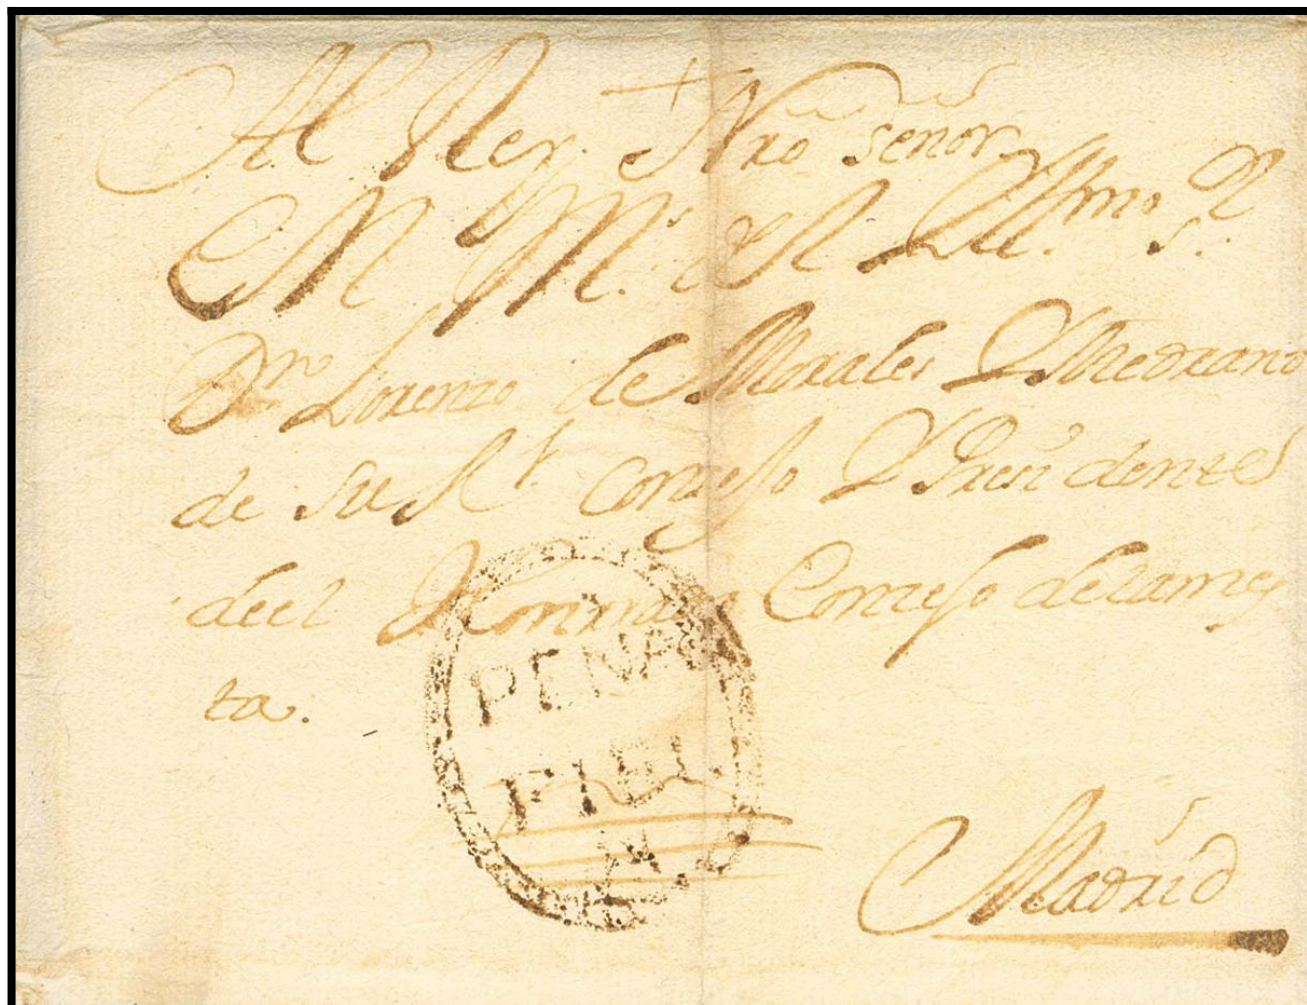 Al Rey. Nrō Señor
M. M.s de R Yll.mo S.r
Dn Lorenzo de Morales Y Medrano
de su Rl. Consejo Y Presidente
deel Honrrado Conzejo delames
ta.
PEÑA
FIEL
Madrid